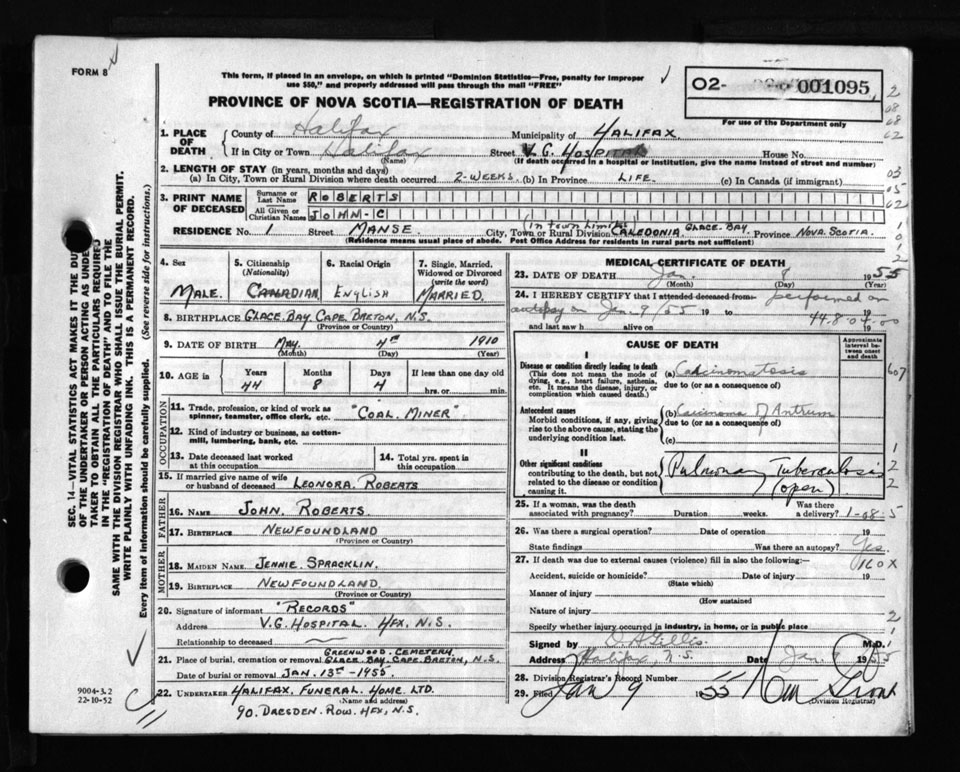 FORM 8
This form, if placed in an envelope, on which is printed "Dominion Statistics—Free, penalty for improper
use $50," and properly addressed will pass through the mail "FREE"
02- 001095
For use of the Department only
PROVINCE OF NOVA SCOTIA—REGISTRATION OF DEATH
2
08
08
62
03
05
62
1. PLACE OF DEATH
County of Halifax Municipality of HALIFAX
If in City or Town Halifax Street V.G. HOSPITAL House No.
(Name) (If death occurred in a hospital or institution, give the name instead of street and number)
2. LENGTH OF STAY (in years, months and days)
(a) In City, Town or Rural Division where death occurred 2-WEEKS. (b) In Province LIFE. (c) In Canada (if immigrant)
3. PRINT NAME OF DECEASED
Surname or Last Name ROBERTS
All Given or Christian Names JOHN-C
RESIDENCE No. 1 Street MANSE City, Town or Rural Division (In town limits) CALEDONIA GLACE BAY Province NOVA SCOTIA.
(Residence means usual place of abode. Post Office Address for residents in rural parts not sufficient)
4. Sex
MALE.
5. Citizenship
(Nationality)
CANADIAN
6. Racial Origin
ENGLISH
7. Single, Married,
Widowed or Divorced
(write the word)
MARRIED.
8. BIRTHPLACE GLACE. BAY. CAPE. BRETON, N.S.
(Province or Country)
9. DATE OF BIRTH MAY. 4TH 1910
(Month) (Day) (Year)
10. AGE in
Years Months Days If less than one day old
44 8 4 hrs. or min.
OCCUPATION
11. Trade, profession, or kind of work as
spinner, teamster, office clerk, etc. "COAL. MINER"
12. Kind of industry or business, as cotton-
mill, lumbering, bank, etc.
13. Date deceased last worked
at this occupation
14. Total yrs. spent in
this occupation
15. If married give name of wife
or husband of deceased LEONORA. ROBERTS
FATHER
16. NAME JOHN. ROBERTS.
17. BIRTHPLACE NEWFOUNDLAND
(Province or Country)
MOTHER
18. MAIDEN NAME JENNIE. SPRACKLIN.
19. BIRTHPLACE NEWFOUNDLAND.
(Province or Country)
20. Signature of informant "RECORDS"
Address V.G. HOSPITAL. HFX, N.S.
Relationship to deceased
GREENWOOD. CEMETERY
21. Place of burial, cremation or removal GLACE. BAY. CAPE. BRETON, N.S.
Date of burial or removal JAN. 13TH-1955.
22. UNDERTAKER HALIFAX. FUNERAL. HOME. LTD.
(Name and address)
90. DRESDEN. ROW. HFX, N.S.
MEDICAL CERTIFICATE OF DEATH
23. DATE OF DEATH Jan. 8 1955
(Month) (Day)
24. I HEREBY CERTIFY that I attended deceased from performed an
autopsy on Jan. 9/55 19 to 19
44.8 04-00
and last saw h alive on 19
CAUSE OF DEATH
Approximate
interval be-
tween onset
and death
I
Disease or condition directly leading to death
(This does not mean the mode of
dying, e.g., heart failure, asthenia,
etc. It means the disease, injury, or
complication which caused death.)
(a) Carcinomatosis
due to (or as a consequence of)
Antecedent causes
Morbid conditions, if any, giving
rise to the above cause, stating the
underlying condition last.
(b) Carcinoma of Antrum
due to (or as a consequence of)
(c)
II
Other significant conditions
contributing to the death, but not
related to the disease or condition
causing it.
Pulmonary Tuberculosis
(open)
25. If a woman, was the death
associated with pregnancy? Duration weeks. Was there
a delivery?
1-08-5
26. Was there a surgical operation? Date of operation 19
State findings Was there an autopsy? Yes
27. If death was due to external causes (violence) fill in also the following:—
160X
Accident, suicide or homicide? Date of injury 19
(State which)
Manner of injury
(How sustained)
Nature of injury
Specify whether injury occurred in industry, in home, or in public place
Signed by M.D.
Address Halifax, N.S. Date Jan. 9 1955
28. Division Registrar's Record Number
29. Filed Jan 9 1955
(Division Registrar)
SEC. 14—VITAL STATISTICS ACT MAKES IT THE DUTY
OF THE UNDERTAKER OR PERSON ACTING AS UNDER-
TAKER TO OBTAIN ALL THE PARTICULARS REQUIRED
IN THE "REGISTRATION OF DEATH" AND TO FILE THE
SAME WITH THE DIVISION REGISTRAR WHO SHALL ISSUE THE BURIAL PERMIT.
WRITE PLAINLY WITH UNFADING INK. THIS IS A PERMANENT RECORD.
Every item of information should be carefully supplied. (See reverse side for instructions.)
9004-3.2
22-10-52